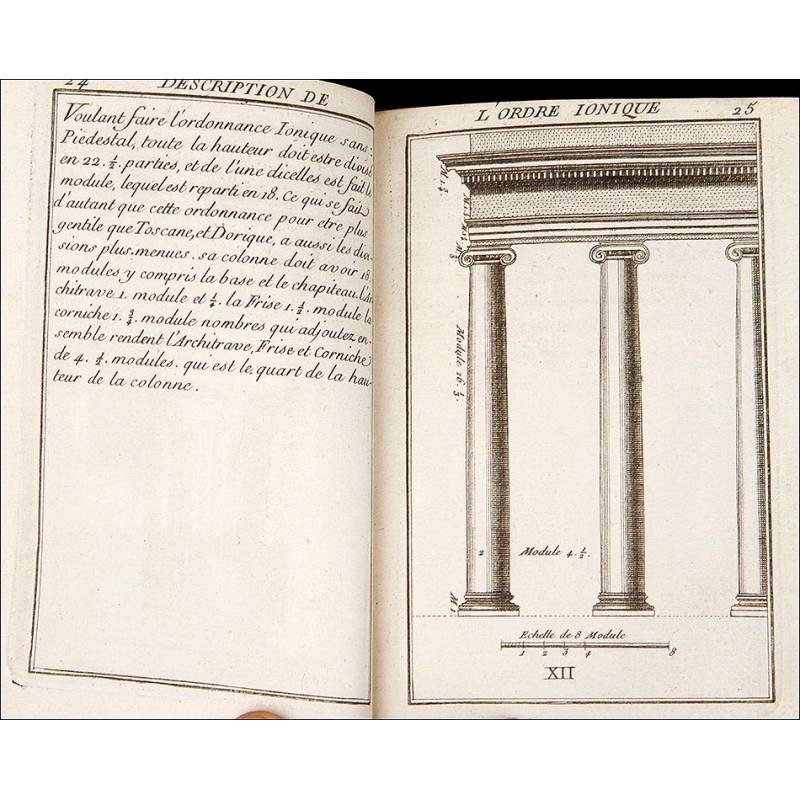 24
DESCRIPTION DE
Voulant faire l'ordonnance Ionique sans
Piedestal, toute la hauteur doit estre divise
en 22. 1/2. parties, et de l'une dicelles est fait le
module, lequel est reparti en 18. Ce qui se fait
d'autant que cette ordonnance pour etre plus
gentile que Toscane, et Dorique, a aussi les divi-
sions plus menues. sa colonne doit avoir 18
modules y compris la base et le chapiteau. l'Ar
chitrave 1. module et 1/4. la Frise 1. 1/2. module la
corniche 1. 3/4. module nombres qui adjoutez en-
semble rendent l'Architrave, Frise et Corniche
de 4. 1/2. modules. qui est le quart de la hau-
teur de la colonne.
L'ORDRE IONIQUE
25
M. 1. 3/4
M. 1. 1/2
M. 1. 1/4
M. 2/3
Module 16. 1/3.
2
Module 4. 1/2.
M 1
Echelle de 8 Module
1 2 3 4 8
XII